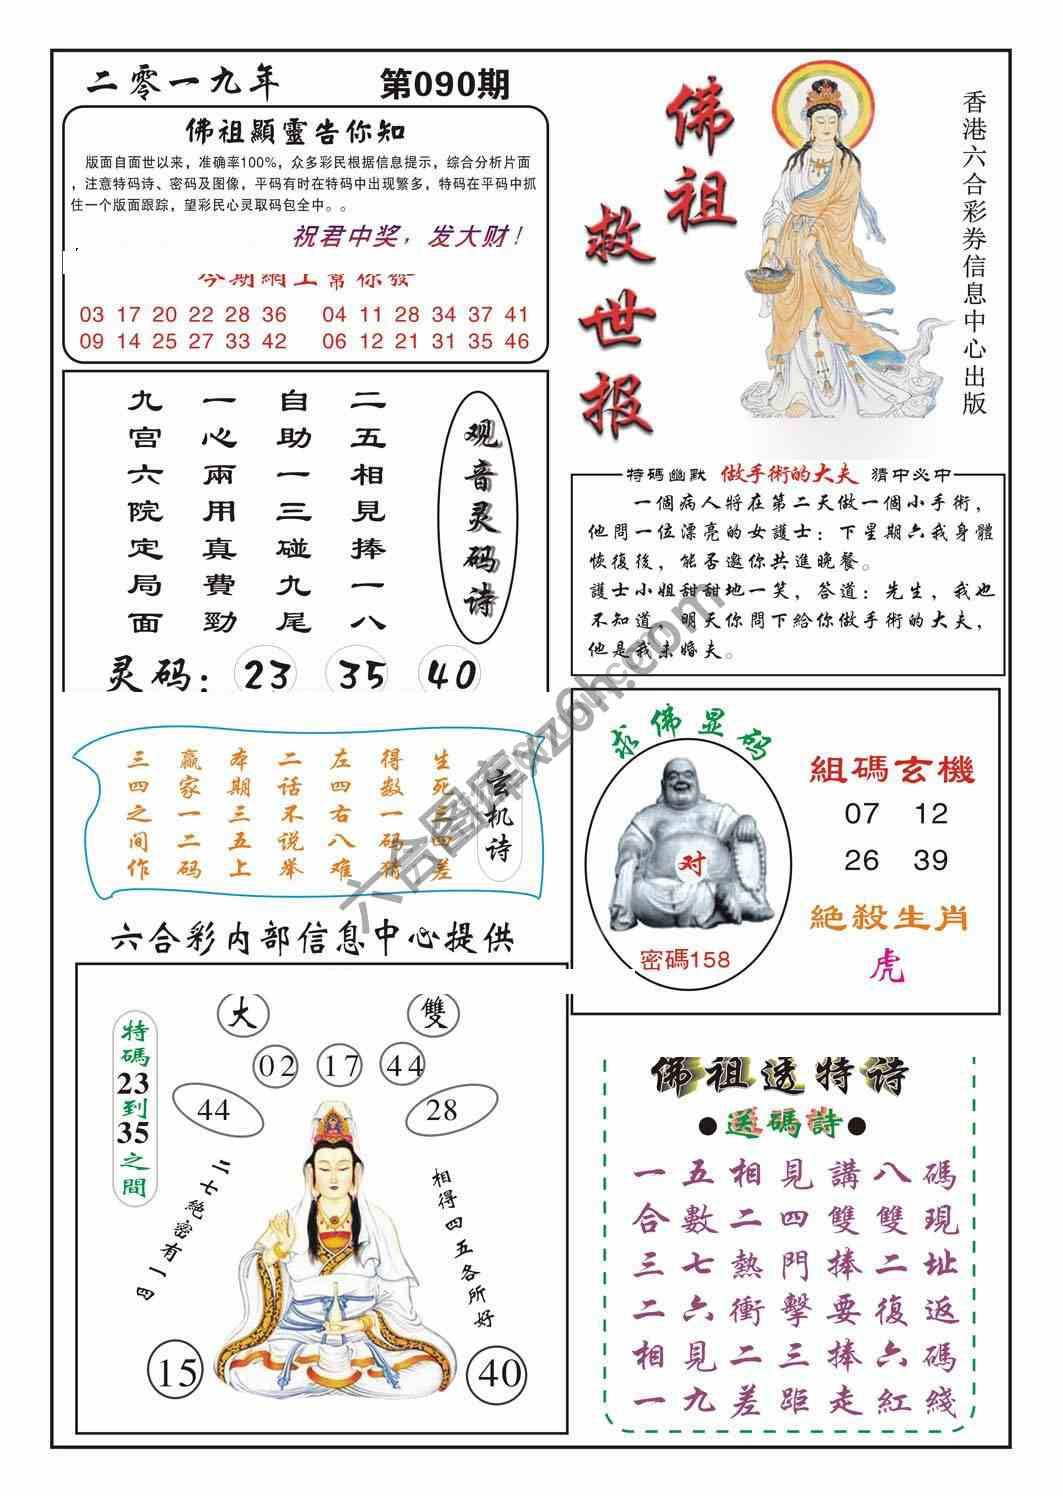 二零一九年
第090期
佛祖顯靈告你知
版面自面世以来，准确率100%，众多彩民根据信息提示，综合分析片面
，注意特码诗、密码及图像，平码有时在特码中出现繁多，特码在平码中抓
住一个版面跟踪，望彩民心灵取码包全中。。
祝君中奖，发大财！
今期網上幫你發
03 17 20 22 28 36
04 11 28 34 37 41
09 14 25 27 33 42
06 12 21 31 35 46
佛祖
救世报
香港六合彩券信息中心出版
观音灵码诗
二五相見捧一八
自助一三碰九尾
一心兩用真費勁
九宫六院定局面
灵码：23 35 40
特碼幽默 做手術的大夫 猜中必中
一個病人將在第二天做一個小手術，
他問一位漂亮的女護士：下星期六我身體
恢復後，能否邀你共進晚餐。
護士小姐甜甜地一笑，答道：先生，我也
不知道，明天你問下給你做手術的大夫，
他是我未婚夫。
玄机诗
生死三四差
得数一码猜
左四右八难
二话不说举
本期三五上
赢家一二码
三四之间作
求佛显码
对
密碼158
組碼玄機
07 12
26 39
絕殺生肖
虎
六合彩内部信息中心提供
大
雙
02 17 44
44
28
特碼23到35之間
二七絕密有一四
相得四五各所好
15
40
佛祖透特诗
●送碼詩●
一五相見講八碼
合數二四雙雙現
三七熱門捧二址
二六衝擊要復返
相見二三捧六碼
一九差距走紅綫
六合图库xz6h.com